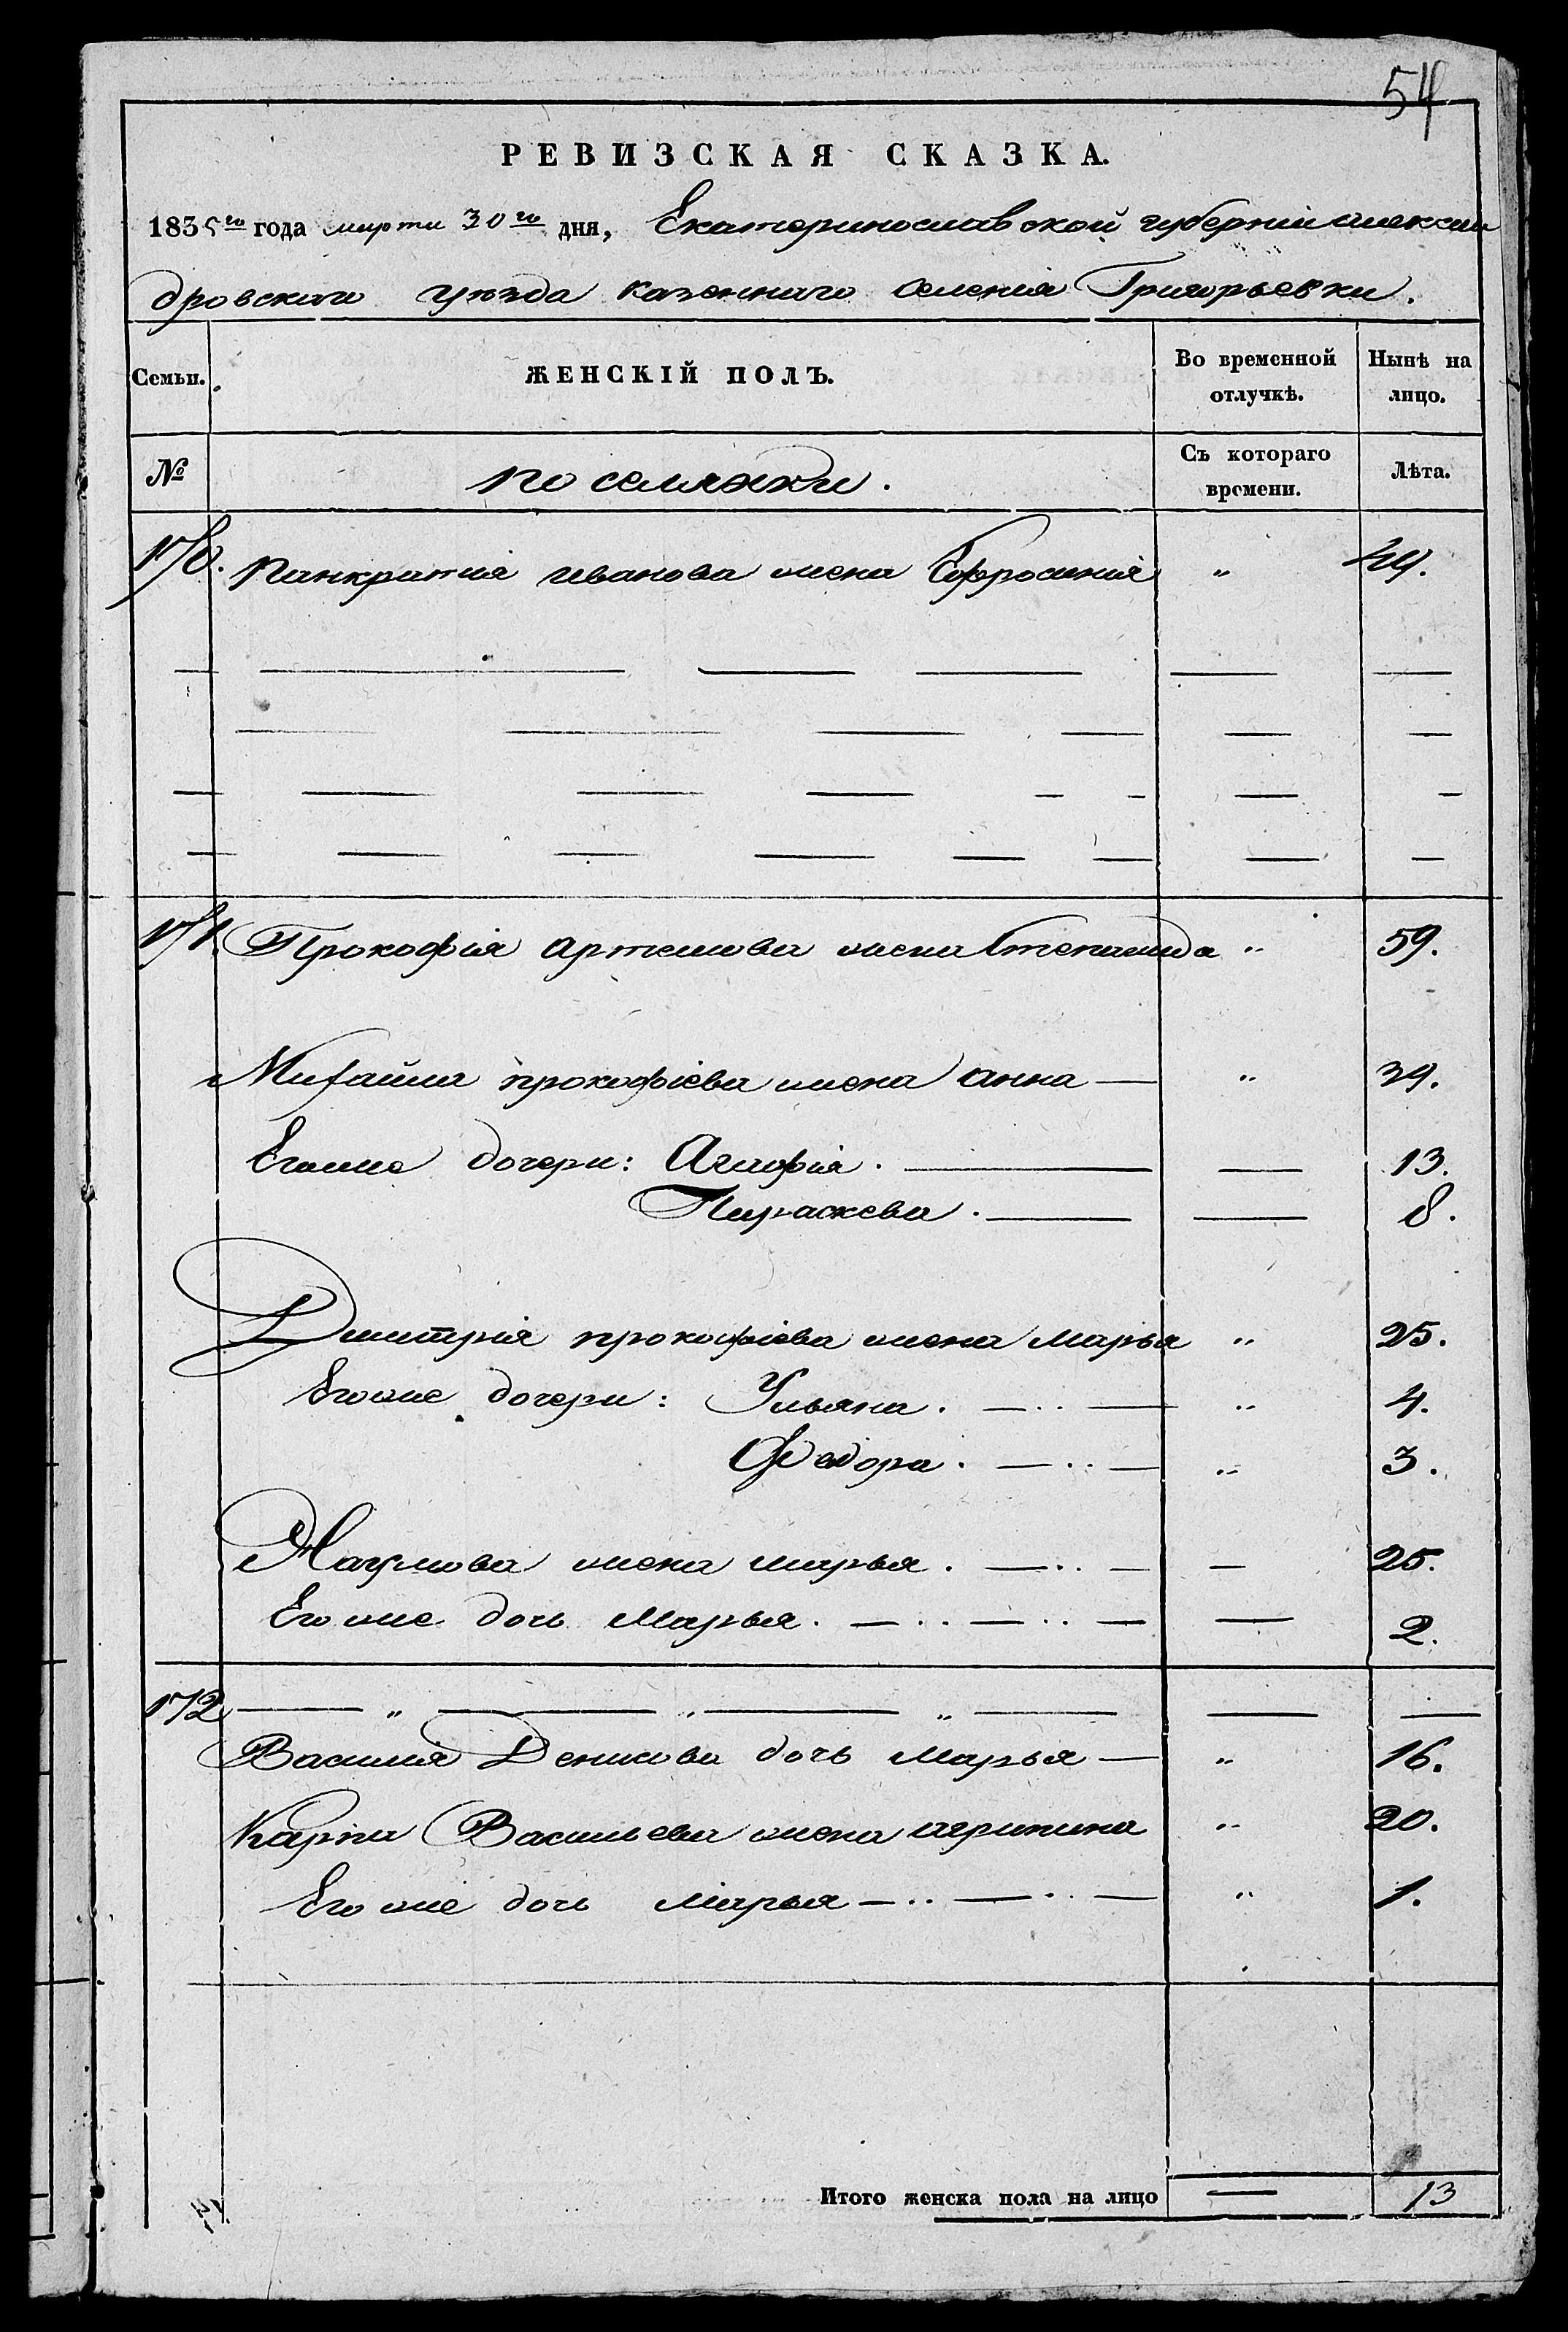 54
РЕВИЗСКАЯ СКАЗКА.
1835го года марта 30го дня, Екатеринославской губернии Алексан
дровскаго уезда казеннаго селения Григорьевки.
Семьи. ЖЕНСКІЙ ПОЛЪ. Во временной отлучкѣ. Нынѣ на лицо.
№ поселянки. Съ котораго времени. Лѣта.
170. Панкратия иванова жена Ефросиния „ 49.
171. Прокофия артемова жена Степанида „ 59.
Михайла прокофиева жена анна — „ 39.
Егоже дочери: Агафия. — — 13.
Параскева. — — 8.
Дмитрия прокофиева жена марья „ 25.
Егоже дочери: Ульяна. — „ 4.
Федора. — „ 3.
Наумова жена марья. — — 25.
Егоже дочь марья. — — 2.
172 — „ — „ — „ — — —
Василия Денисова дочь марья — „ 16.
Карпа Васильева жена агрипина „ 20.
Егоже дочь марья — „ 1.
Итого женска пола на лицо — 13